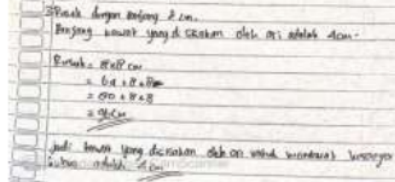 3) Rusuk dengan panjang 8 cm.
Panjang kawat yang di sisakan oleh ari adalah 4cm.
Rusuk = 8x8 cm
= 64 + 8 + 8
= 80 + 8 + 8
= 96 cm
Jadi kawat yang disisakan oleh ari untuk membuat
adalah 4 cm